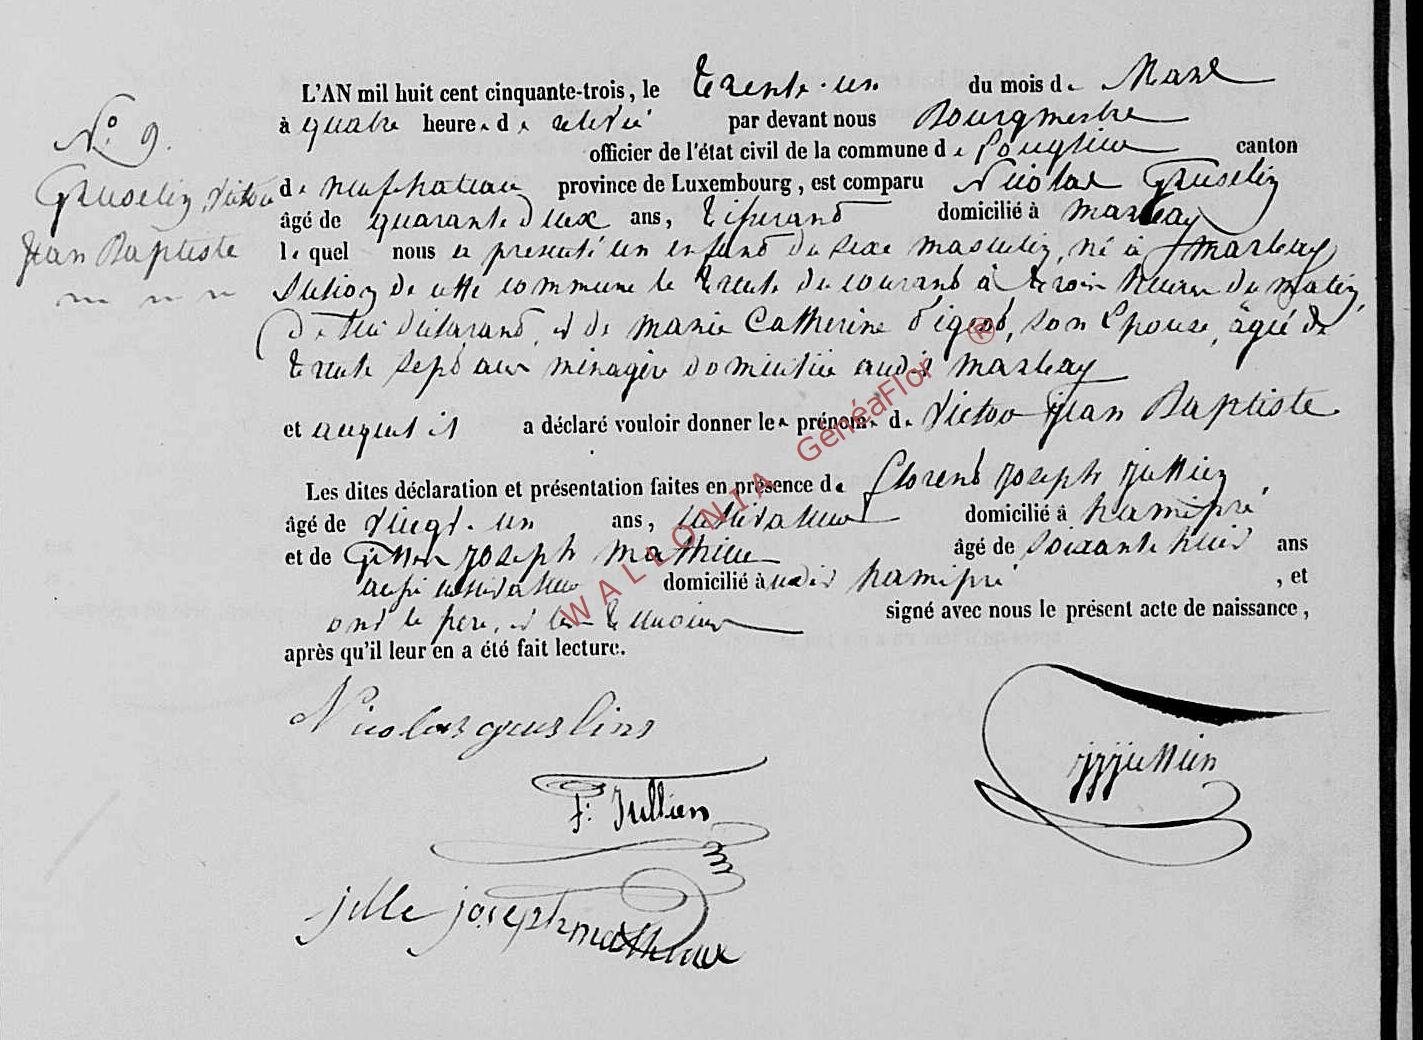 L'AN mil huit cent cinquante-trois, le trente-un du mois de Mars
à quatre heures de relevée par devant nous Bourgmestre
officier de l'état civil de la commune de Longlier canton
N.° 9.
de neufchateau province de Luxembourg, est comparu Nicolas Gruselin
Gruselin, Victor
âgé de quarante deux ans, tisserand domicilié à Marbay
Jean Baptiste
lequel nous a presenté un enfant du sexe masculin, né à Marbay
Section de cette commune le trente du courant à trois heures du matin,
De lui déclarant, et de Marie Catherine, son Epouse, âgée de
trente sept ans ménagère domiciliée audit Marbay
et auquel il a déclaré vouloir donner les prénoms de Victor Jean Baptiste
Les dites déclaration et présentation faites en présence de Florent Joseph Jullien
âgé de vingt-un ans, cultivateur domicilié à hamipré
et de Gille Joseph Mathieu âgé de soixante huit ans
aussi cultivateur domicilié audit hamipré, et
ont le père, et les temoins signé avec nous le présent acte de naissance,
après qu'il leur en a été fait lecture.
Nicolas gruslins
jjjullien
F: Jullien
jille joseph mathieu
WALLONIA GenéaFlor ®